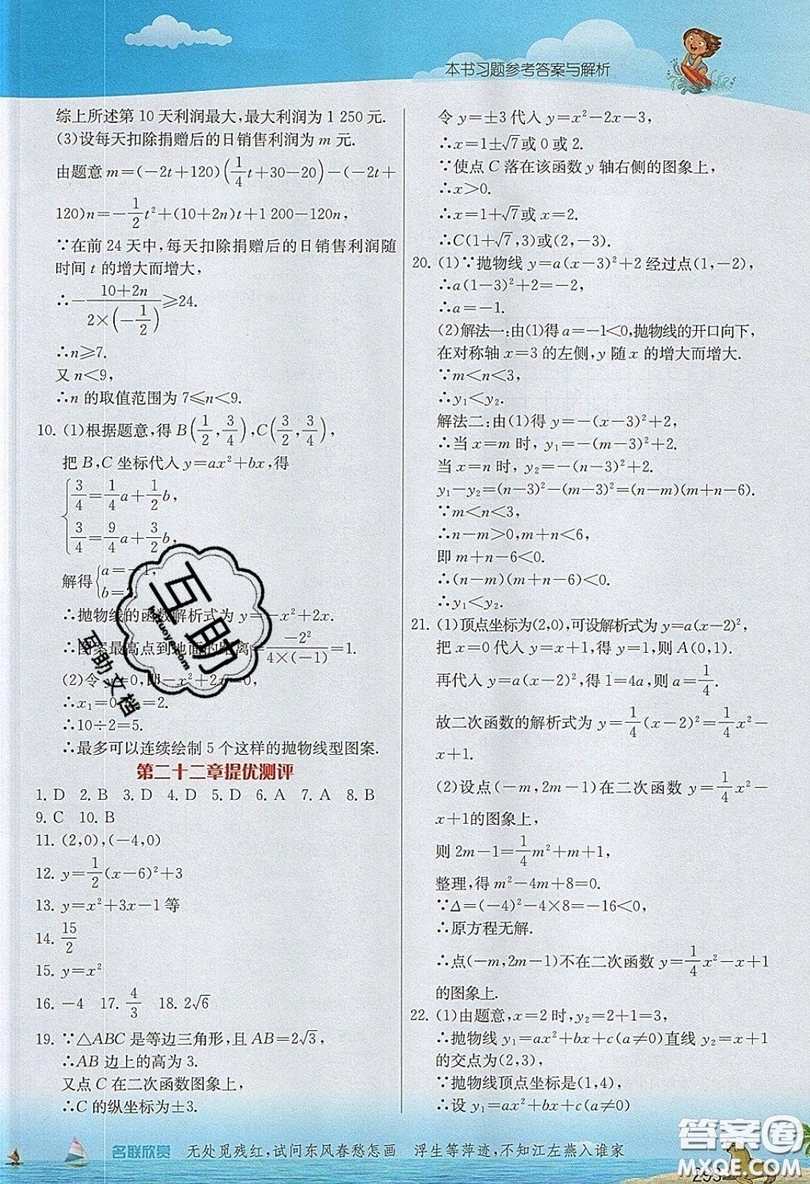 本书习题参考答案与解析
综上所述第10天利润最大,最大利润为1 250元.
(3)设每天扣除捐赠后的日销售利润为m元.
由题意m=(−2t+120)(1/4t+30−20)−(−2t+
120)n=−1/2t²+(10+2n)t+1 200−120n,
∵在前24天中,每天扣除捐赠后的日销售利润随
时间t的增大而增大,
∴−(10+2n)/(2×(−1/2))≥24.
∴n≥7.
又n<9,
∴n的取值范围为7≤n<9.
10. (1)根据题意,得B(1/2,3/4),C(3/2,3/4),
把B,C坐标代入y=ax²+bx,得
{3/4=1/4a+1/2b,
3/4=9/4a+3/2b,
解得{a=
b=
∴抛物线的函数解析式为y=−x²+2x.
∴图案最高点到地面的距离=−2²/(4×(−1))=1.
(2)令y=0,则−x²+2x=0,
∴x₁=0 =2.
∴10÷2=5.
∴最多可以连续绘制5个这样的抛物线型图案.
第二十二章提优测评
1. D 2. B 3. D 4. D 5. D 6. A 7. A 8. B
9. C 10. B
11. (2,0),(−4,0)
12. y=1/2(x−6)²+3
13. y=x²+3x−1等
14. 15/2
15. y=x²
16. −4 17. 4/3 18. 2√6
19. ∵△ABC是等边三角形,且AB=2√3,
∴AB边上的高为3.
又点C在二次函数图象上,
∴C的纵坐标为±3.
令y=±3代入y=x²−2x−3,
∴x=1±√7或0或2.
∵使点C落在该函数y轴右侧的图象上,
∴x>0.
∴x=1+√7或x=2.
∴C(1+√7,3)或(2,−3).
20. (1)∵抛物线y=a(x−3)²+2经过点(1,−2),
∴a(1−3)²+2=−2,
∴a=−1.
(2)解法一:由(1)得a=−1<0,抛物线的开口向下,
在对称轴x=3的左侧,y随x的增大而增大.
∵m<n<3,
∴y₁<y₂.
解法二:由(1)得y=−(x−3)²+2,
∴当x=m时,y₁=−(m−3)²+2.
当x=n时,y₂=−(n−3)²+2.
y₁−y₂=(n−3)²−(m−3)²=(n−m)(m+n−6).
∵m<n<3,
∴n−m>0,m+n<6,
即m+n−6<0.
∴(n−m)(m+n−6)<0.
∴y₁<y₂.
21. (1)顶点坐标为(2,0),可设解析式为y=a(x−2)²,
把x=0代入y=x+1,得y=1,则A(0,1).
再代入y=a(x−2)²,得1=4a,则a=1/4.
故二次函数的解析式为y=1/4(x−2)²=1/4x²−
x+1.
(2)设点(−m,2m−1)在二次函数y=1/4x²−
x+1的图象上,
则2m−1=1/4m²+m+1,
整理,得m²−4m+8=0.
∵Δ=(−4)²−4×8=−16<0,
∴原方程无解.
∴点(−m,2m−1)不在二次函数y=1/4x²−x+1
的图象上.
22. (1)由题意,x=2时,y₂=2+1=3,
∴抛物线y₁=ax²+bx+c(a≠0)直线y₂=x+1
的交点为(2,3),
∵抛物线顶点坐标是(1,4),
∴设y₁=ax²+bx+c(a≠0)的解析式为y₁=
名联欣赏 无处觅残红,试问东风春愁怎画 浮生等萍迹,不知江左燕入谁家
互助
互助文档
答案圈
MXQE.COM